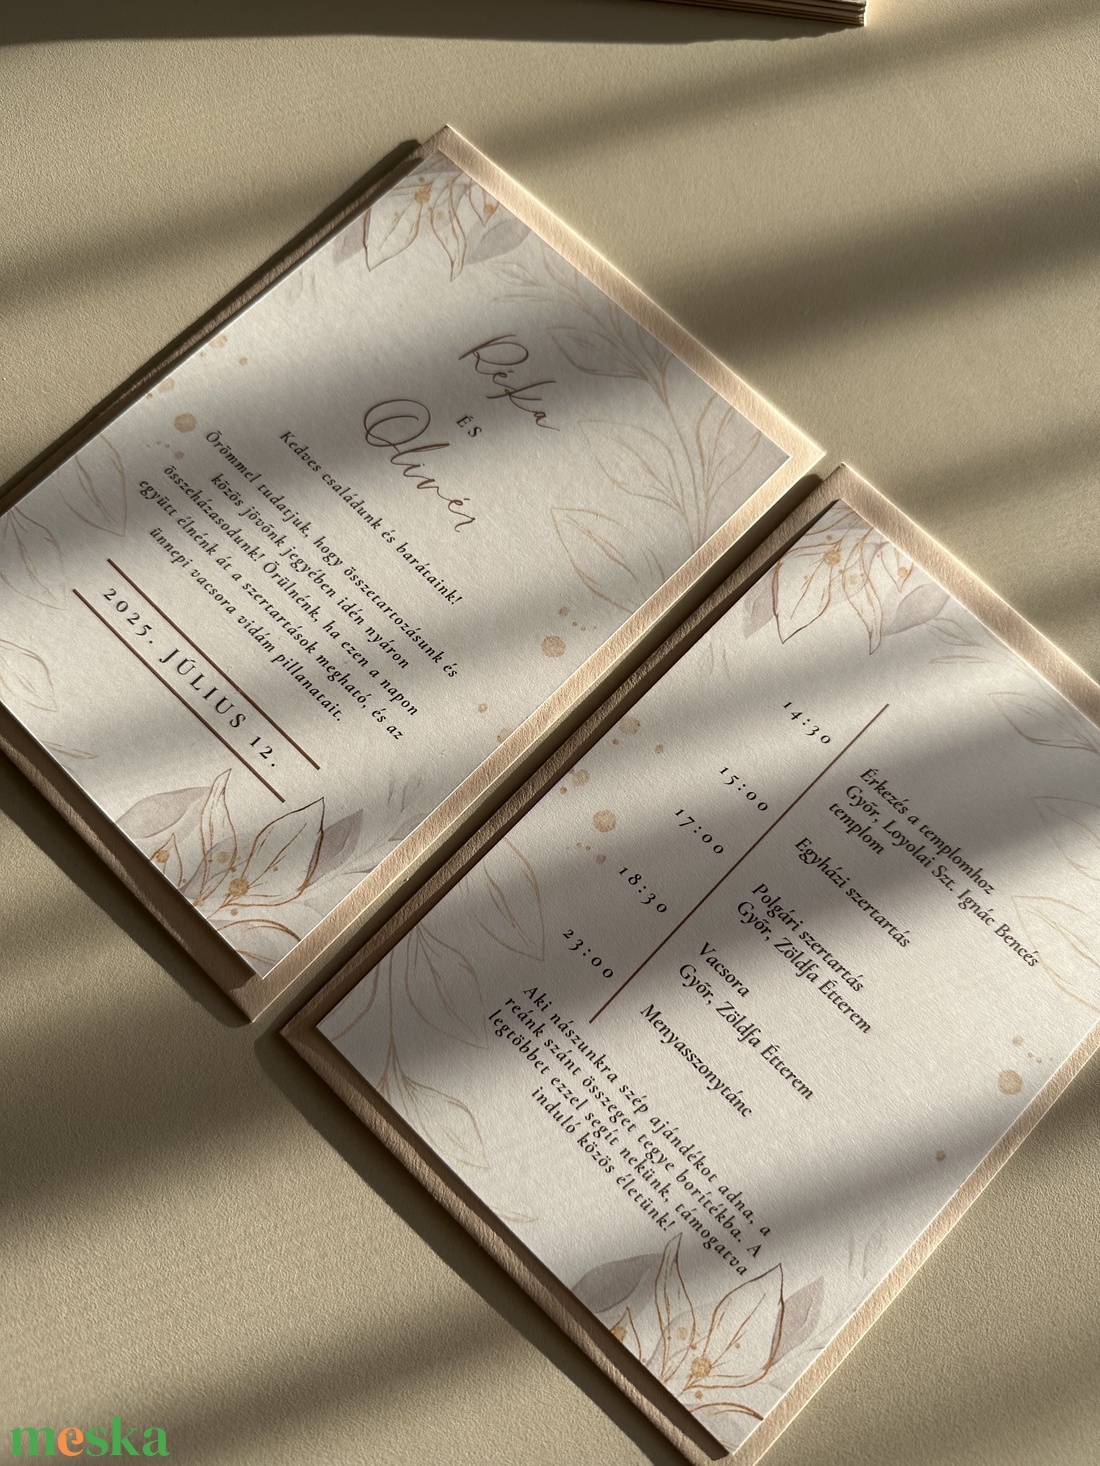 Réka
ÉS
Olivér
Kedves családunk és barátaink!
Örömmel tudatjuk, hogy összetartozásunk és
közös jövőnk jegyében idén nyáron
összeházasodunk! Örülnénk, ha ezen a napon
együtt élnénk át a szertartások megható, és az
ünnepi vacsora vidám pillanatait.
2025. JÚLIUS 12.
14:30
Érkezés a templomhoz
Győr, Loyolai Szt. Ignác Bencés
templom
15:00
Egyházi szertartás
17:00
Polgári szertartás
Győr, Zöldfa Étterem
18:30
Vacsora
Győr, Zöldfa Étterem
23:00
Menyasszonytánc
Aki nászunkra szép ajándékot adna, a
reánk szánt összeget tegye borítékba. A
legtöbbet ezzel segít nekünk, támogatva
induló közös életünk!
meska